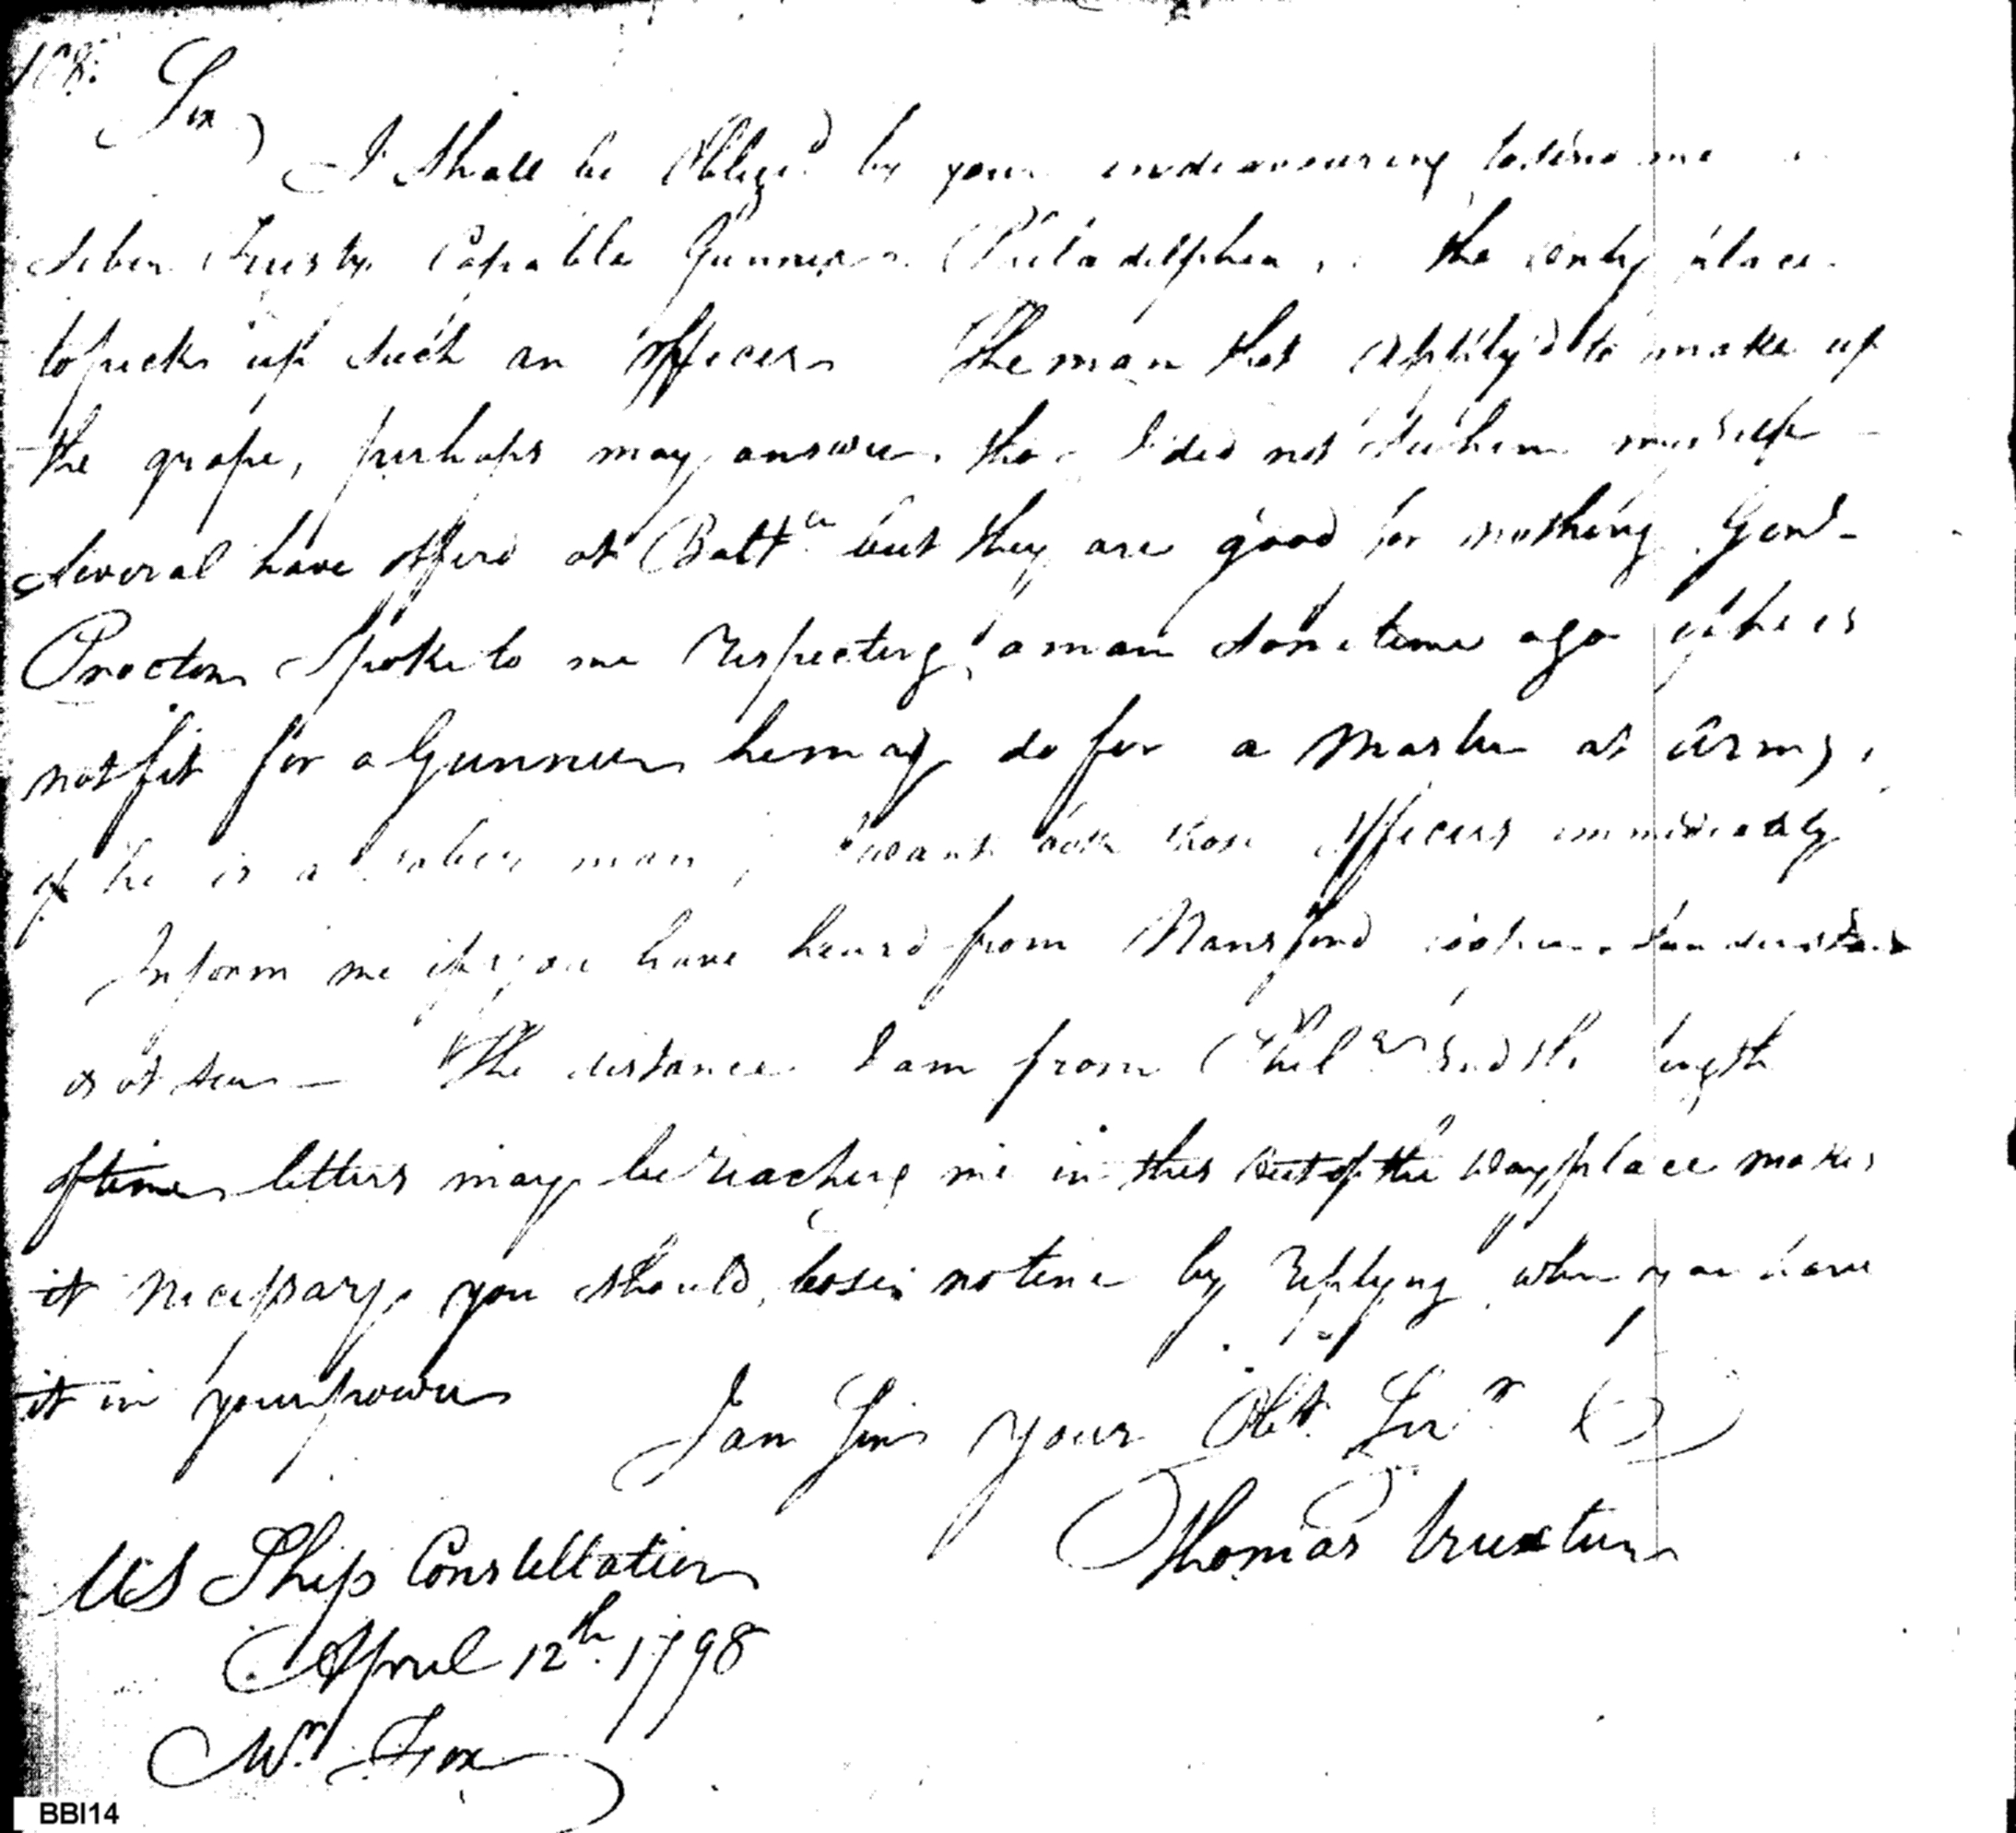 108.
Sir
I Shall be Oblige'd by your endeavouring to send me a
Sober Trusty Capable Gunner Philadelphia the only place
to pick up such an Officer The man that applily'd to make up
the grape, perhaps may answer, tho I did not see him myself
Several have offerd at Balte but they are good for nothing. Genl
Procter Spoke to me respecting a man some time ago if he is
not fit for a Gunner he may do for a Master at Arms,
if he is a sober man, I want both those Officers immediately
Inform me if you have heard from Mansford I understand
is at sea — The distance I am from Phila and the length
of time letters may be reaching me in this out of the way place makes
it necessary you should lose no time by replying when you have
it in your power
I am Sir your Obt. Serr
Thomas Truxtun
US Ship Constellation
April 12th 1798
Mr. Fox
BBI14